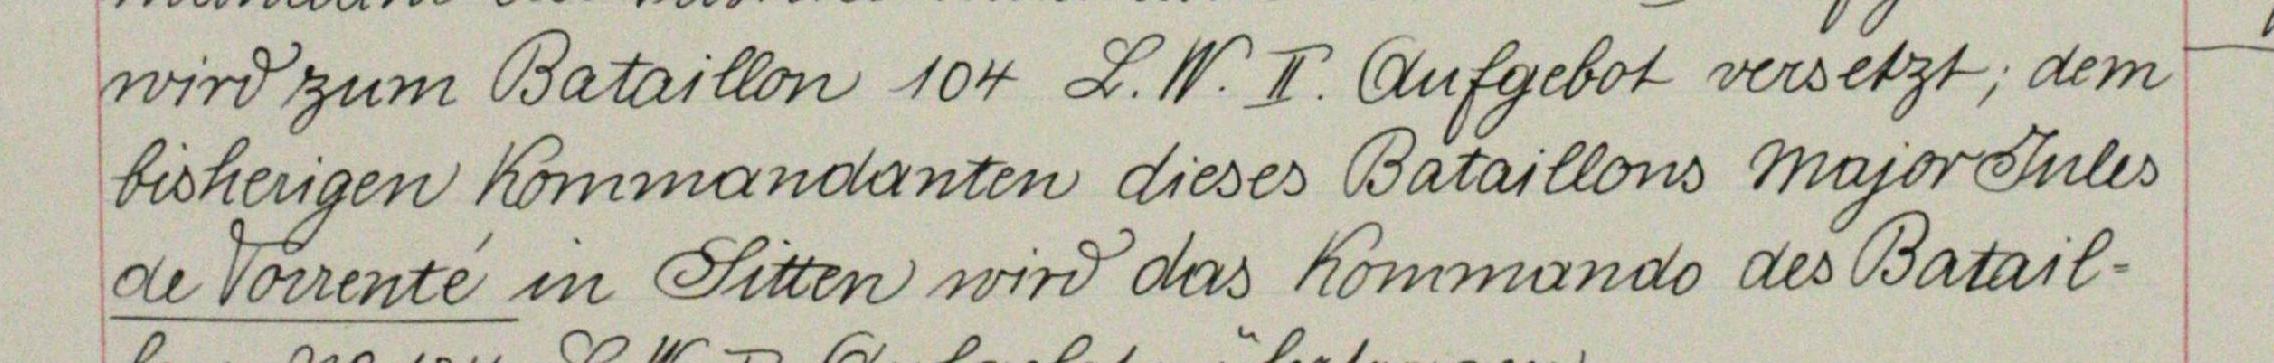 wird zum Bataillon 104 L. W. II. Aufgebot versetzt; dem
bisherigen Kommandanten dieses Bataillons Major Jules
de Torrenté in Sitten wird das Kommando des Batail-